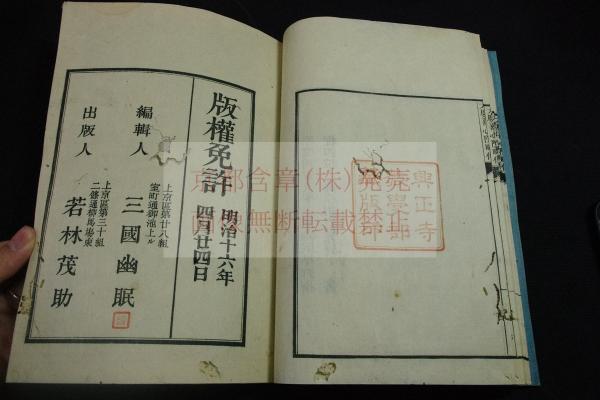 版權免許 明治十六年四月廿四日
編輯人 上京區第廿八組室町通御池上ル 三國幽眠
出版人 上京區第三十組二條通柳馬場東 若林茂助
興正寺
學部
出版印
京都含章(株)発売
画像無断転載禁止